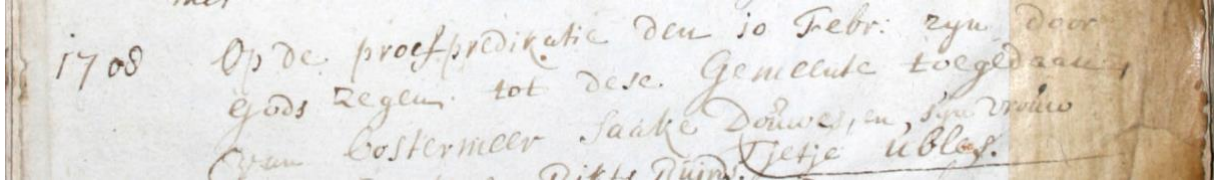 1708 Op de proefpredikatie den 10 Febr: zyn door
gods zegen tot dese Gemeente toegedaan,
van Oostermeer Saake Douwes, en, syn vrouw
Tjetje ubles.